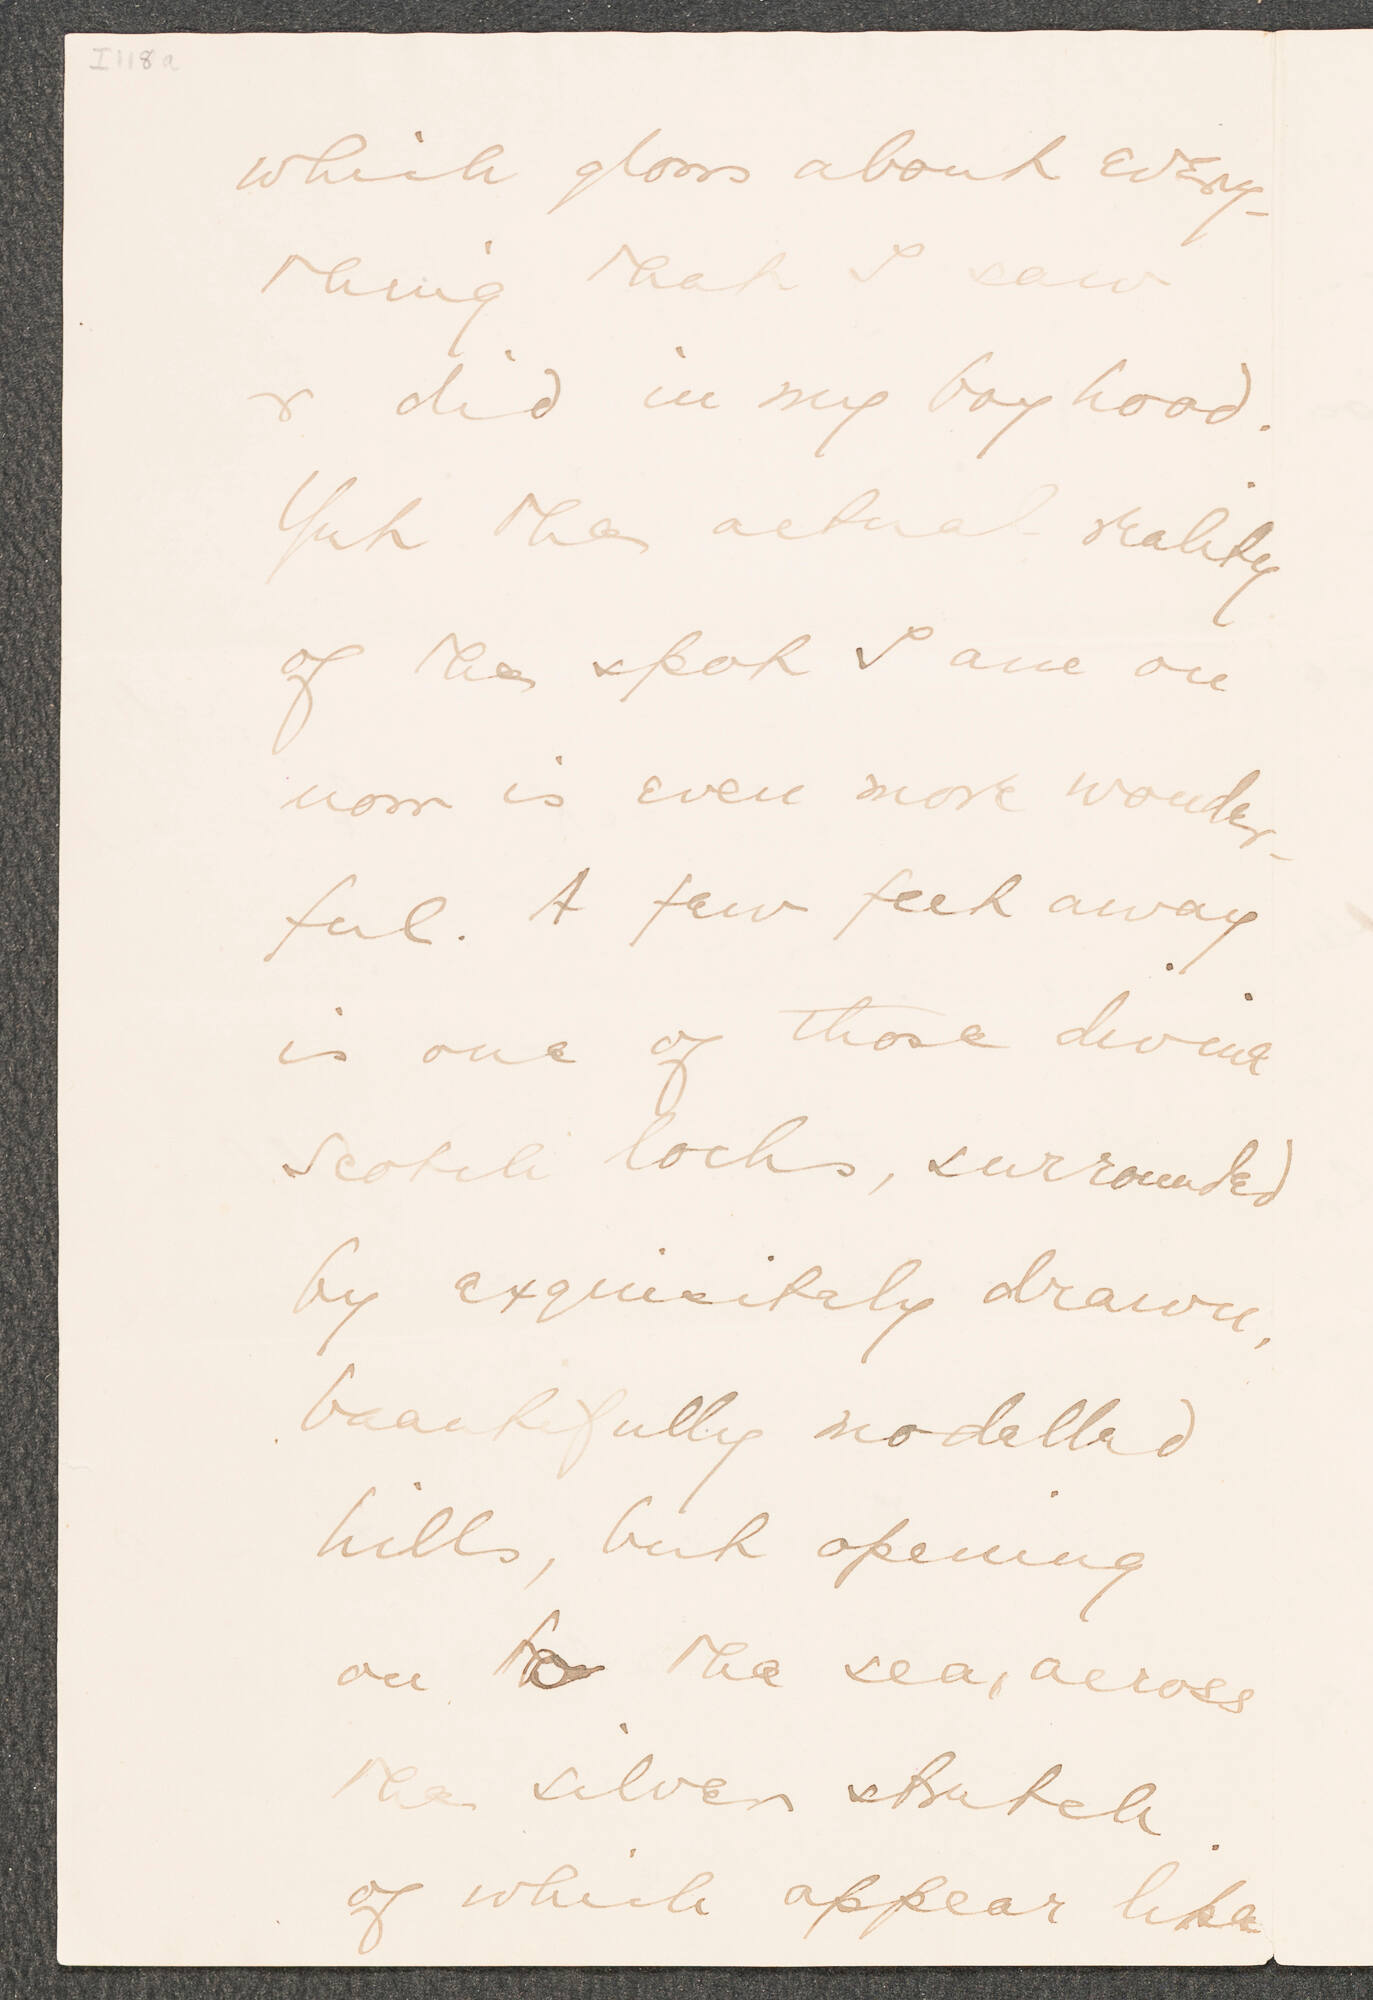 I118a
which glows about every-
thing that I saw
& did in my boyhood.
Yet the actual reality
of the spot I am on
now is even more wonder-
ful. A few feet away
is one of those divine
Scotch lochs, surrounded
by exquisitely drawn,
beautifully modelled
hills, but opening
on to the sea, across
the silver stretch
of which appear like